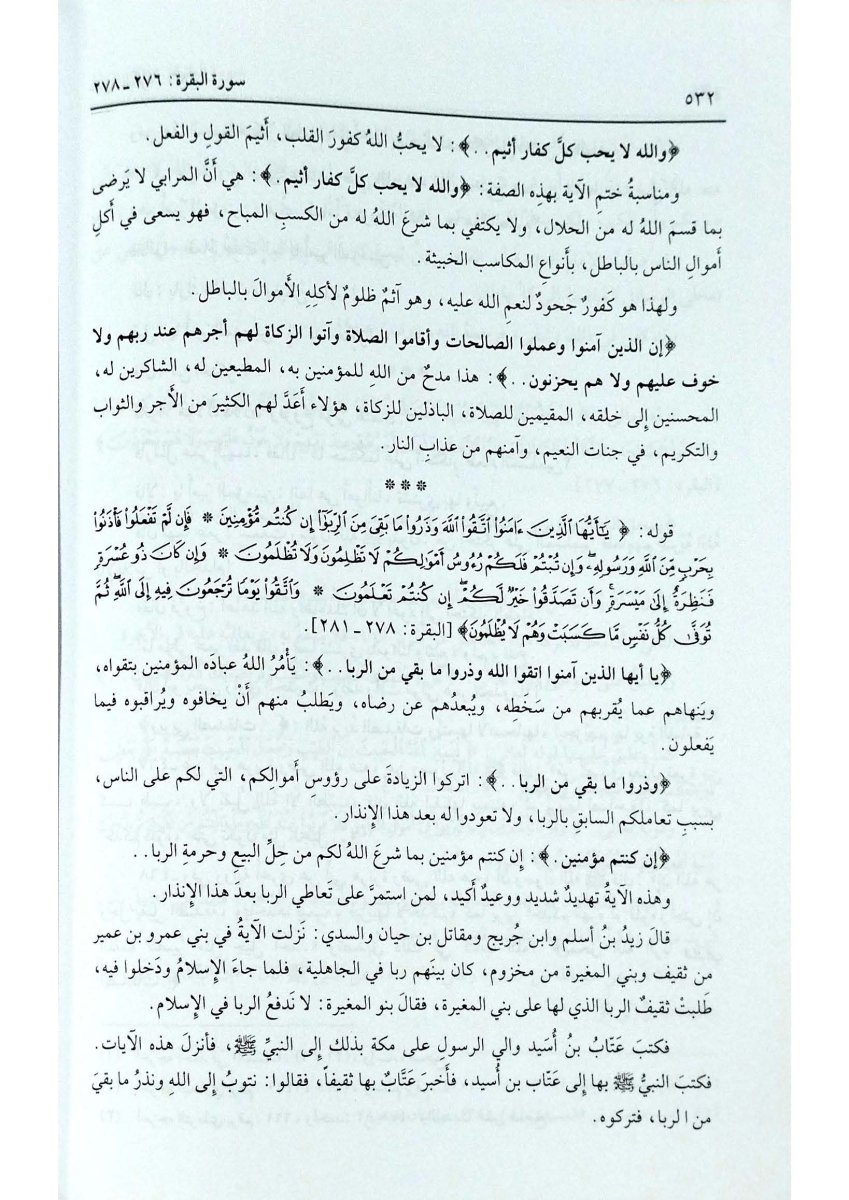 ٥٣٢ سورة البقرة: ٢٧٦ ـ ٢٧٨
﴿والله لا يحب كلَّ كفار أثيم..﴾: لا يحبُّ اللهُ كفورَ القلب، أَثيمَ القولِ والفعل.
ومناسبةُ ختمِ الآية بهذِه الصفة: ﴿والله لا يحب كلَّ كفار أثيم.﴾: هي أَنَّ المرابي لا يَرضى
بما قسمَ اللهُ له من الحلال، ولا يكتفي بما شرعَ اللهُ له من الكسبِ المباح، فهو يسعى في أَكلِ
أَموالِ الناس بالباطل، بأَنواعِ المكاسب الخبيثة.
ولهذا هو كَفورٌ جَحودٌ لنعمِ الله عليه، وهو آثمٌ ظلومٌ لأَكلِهِ الأَموالَ بالباطل.
﴿إن الذين آمنوا وعملوا الصالحات وأقاموا الصلاة وآتوا الزكاة لهم أجرهم عند ربهم ولا
خوف عليهم ولا هم يحزنون..﴾: هذا مدحٌ من اللهِ للمؤمنين به، المطيعين له، الشاكرين له،
المحسنين إلى خلقه، المقيمين للصلاة، الباذلين للزكاة، هؤلاء أَعَدَّ لهم الكثيرَ من الأَجر والثواب
والتكريم، في جنات النعيم، وآمنهم من عذابِ النار.
***
قوله: ﴿يَٰٓأَيُّهَا الَّذِينَ ءَامَنُوا۟ اتَّقُوا۟ اللَّهَ وَذَرُوا۟ مَا بَقِىَ مِنَ الرِّبَوٰٓا۟ إِن كُنتُم مُّؤْمِنِينَ * فَإِن لَّمْ تَفْعَلُوا۟ فَأْذَنُوا۟
بِحَرْبٍ مِّنَ اللَّهِ وَرَسُولِهِۦ ۖ وَإِن تُبْتُمْ فَلَكُمْ رُءُوسُ أَمْوَٰلِكُمْ لَا تَظْلِمُونَ وَلَا تُظْلَمُونَ * وَإِن كَانَ ذُو عُسْرَةٍ
فَنَظِرَةٌ إِلَىٰ مَيْسَرَةٍ ۚ وَأَن تَصَدَّقُوا۟ خَيْرٌ لَّكُمْ ۖ إِن كُنتُمْ تَعْلَمُونَ * وَاتَّقُوا۟ يَوْمًا تُرْجَعُونَ فِيهِ إِلَى اللَّهِ ۖ ثُمَّ
تُوَفَّىٰ كُلُّ نَفْسٍ مَّا كَسَبَتْ وَهُمْ لَا يُظْلَمُونَ﴾ [البقرة: ٢٧٨ ـ ٢٨١].
﴿يا أيها الذين آمنوا اتقوا الله وذروا ما بقي من الربا..﴾: يَأْمُرُ اللهُ عبادَه المؤمنين بتقواه،
ويَنهاهم عما يُقربهم من سَخَطِه، ويُبعدُهم عن رضاه، ويَطلبُ منهم أَنْ يخافوه ويُراقبوه فيما
يَفعلون.
﴿وذروا ما بقي من الربا..﴾: اتركوا الزيادةَ على رؤوسِ أَموالِكم، التي لكم على الناس،
بسببِ تعاملكم السابقِ بالربا، ولا تعودوا له بعد هذا الإِنذار.
﴿إن كنتم مؤمنين.﴾: إن كنتم مؤمنين بما شرعَ اللهُ لكم من حِلِّ البيعِ وحرمةِ الربا..
وهذه الآيةُ تهديدٌ شديد ووعيدٌ أَكيد، لمن استمرَّ على تَعاطي الربا بعدَ هذا الإِنذار.
قالَ زيدُ بنُ أسلم وابن جُريج ومقاتل بن حيان والسدي: نَزلت الآيةُ في بني عمرو بن عمير
من ثقيف وبني المغيرة من مخزوم، كان بينَهم ربا في الجاهلية، فلما جاءَ الإِسلامُ ودَخلوا فيه،
طَلبتْ ثقيفُ الربا الذي لها على بني المغيرة، فقالَ بنو المغيرة: لا نَدفعُ الربا في الإِسلام.
فكتبَ عَتّابُ بنُ أُسَيد والي الرسولِ على مكة بذلك إلى النبيِّ ﷺ، فأَنزلَ هذه الآيات.
فكتبَ النبيُّ ﷺ بها إلى عَتّاب بن أُسيد، فأَخبرَ عَتَّابٌ بها ثقيفاً، فقالوا: نتوبُ إلى اللهِ ونذرُ ما بقيَ
من الربا، فتركوه.